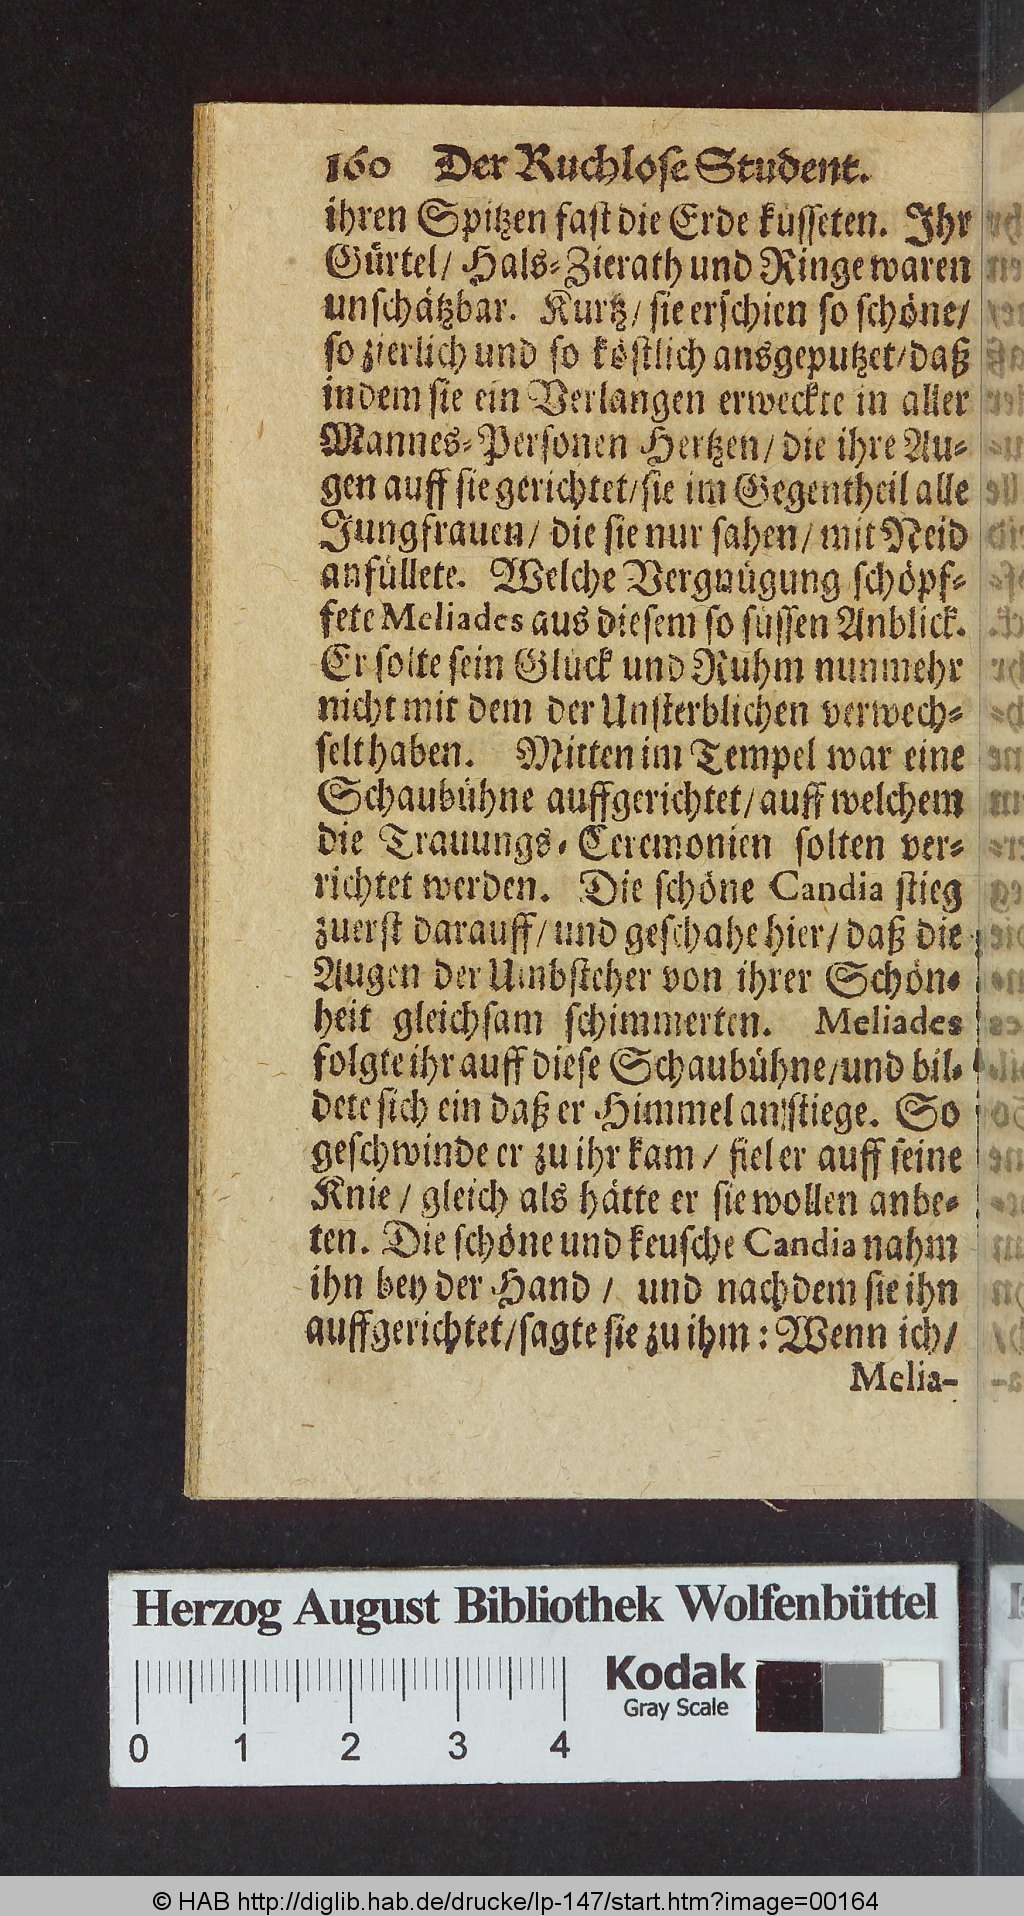 160 Der Ruchlose Student.
ihren Spitzen fast die Erde küsseten. Ihr
Gürtel/ Hals-Zierath und Ringe waren
unschätzbar. Kurtz/ sie erschien so schöne/
so zierlich und so köstlich ansgeputzet/ daß
indem sie ein Verlangen erweckte in aller
Mannes-Personen Hertzen/ die ihre Au-
gen auff sie gerichtet/ sie im Gegentheil alle
Jungfrauen/ die sie nur sahen/ mit Neid
anfüllete. Welche Vergnügung schöpf-
fete Meliades aus diesem so süssen Anblick.
Er solte sein Glück und Ruhm nunmehr
nicht mit dem der Unsterblichen verwech-
selt haben. Mitten im Tempel war eine
Schaubühne auffgerichtet/ auff welchem
die Trauungs-Ceremonien solten ver-
richtet werden. Die schöne Candia stieg
zuerst darauff/ und geschahe hier/ daß die
Augen der Umbsteher von ihrer Schön-
heit gleichsam schimmerten. Meliades
folgte ihr auff diese Schaubühne/ und bil-
dete sich ein daß er Himmel anstiege. So
geschwinde er zu ihr kam/ fiel er auff seine
Knie/ gleich als hätte er sie wollen anbe-
ten. Die schöne und keusche Candia nahm
ihn bey der Hand/ und nachdem sie ihn
auffgerichtet/ sagte sie zu ihm: Wenn ich/
Melia-
Herzog August Bibliothek Wolfenbüttel
Kodak
Gray Scale
0 1 2 3 4
© HAB http://diglib.hab.de/drucke/lp-147/start.htm?image=00164